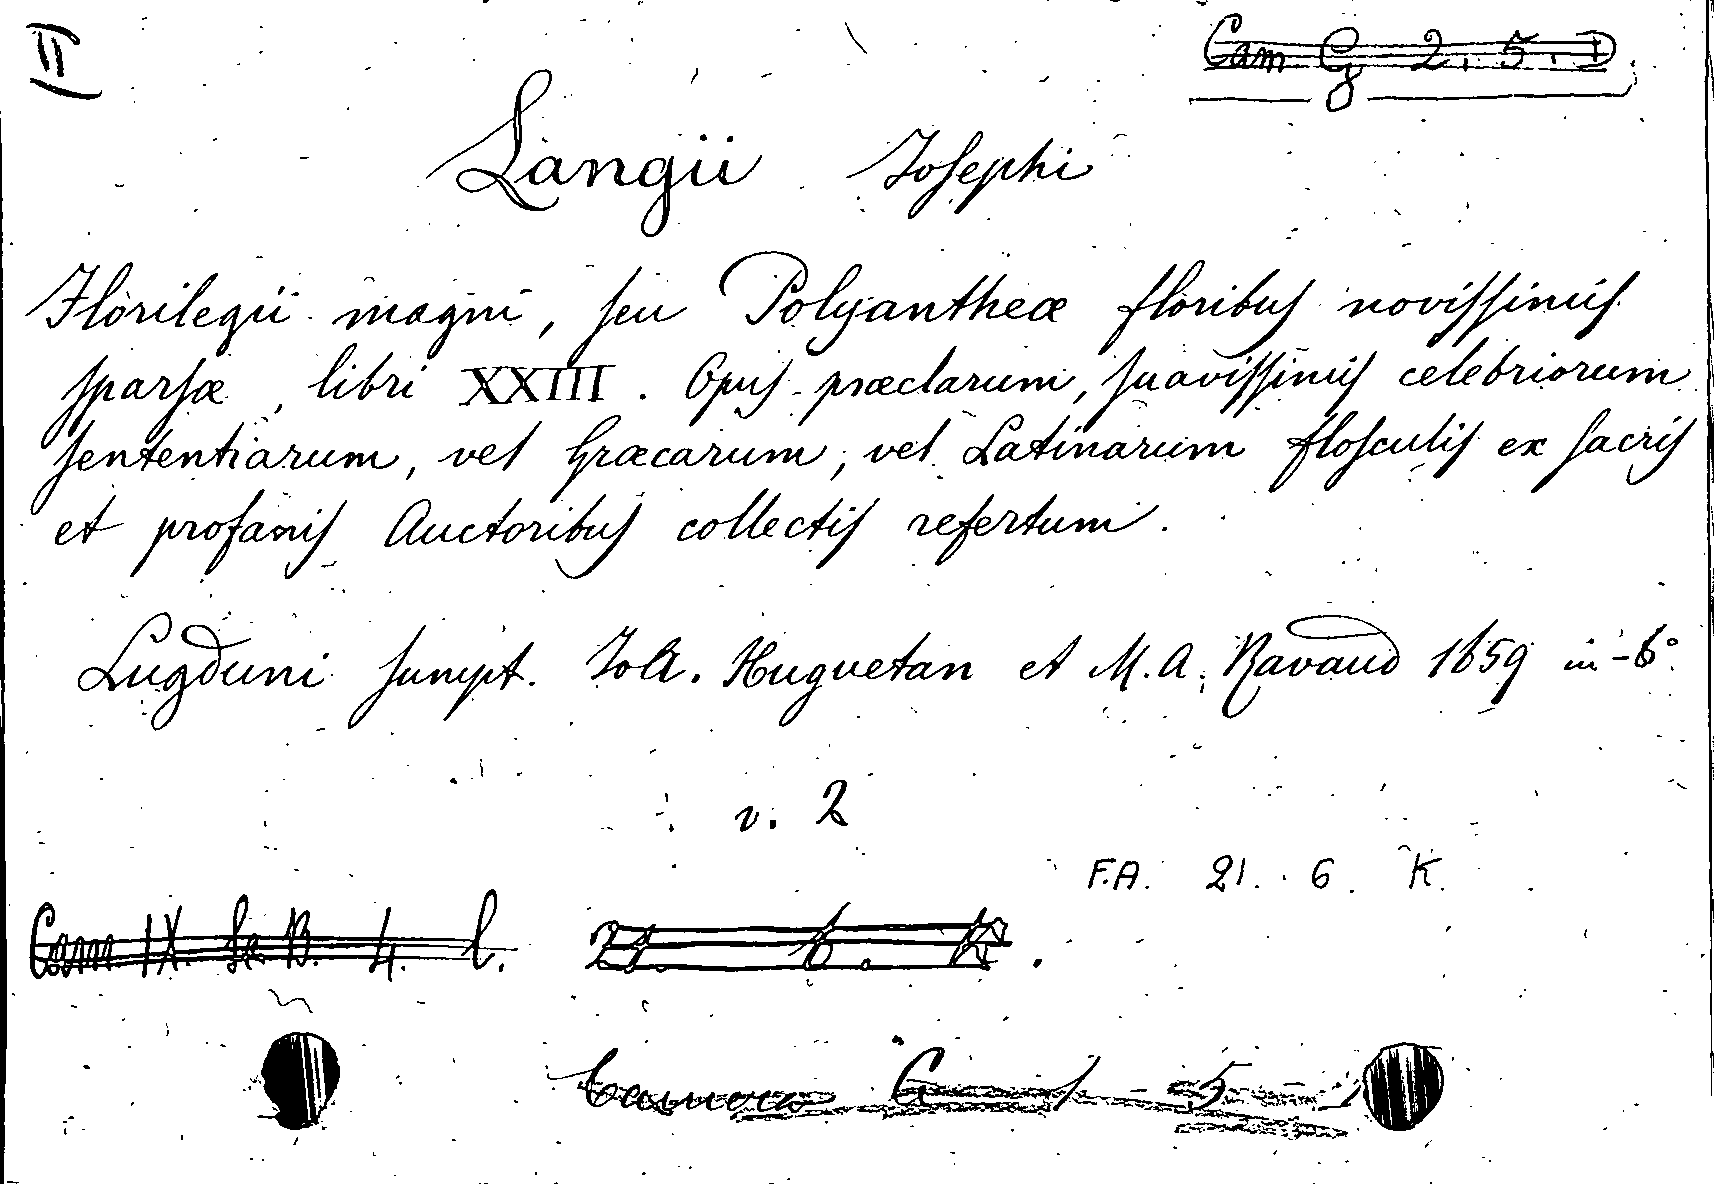 II
Cam G 2. 5. D.
Langii Josephi
Florilegii magni, seu Polyantheæ floribus novissimis
sparsæ, libri XXIII. Opus præclarum, suavissimis celebriorum
sententiarum, vel Græcarum, vel Latinarum flosculis ex sacris
et profanis Auctoribus collectis refertum.
Lugduni sumpt. Joa. Huguetan et M. A. Ravaud 1659 in-6°.
v. 2
F.A. 21. 6. K.
Cam IX. Sc. B. 4. l. 21. 6. K.
Camera 5